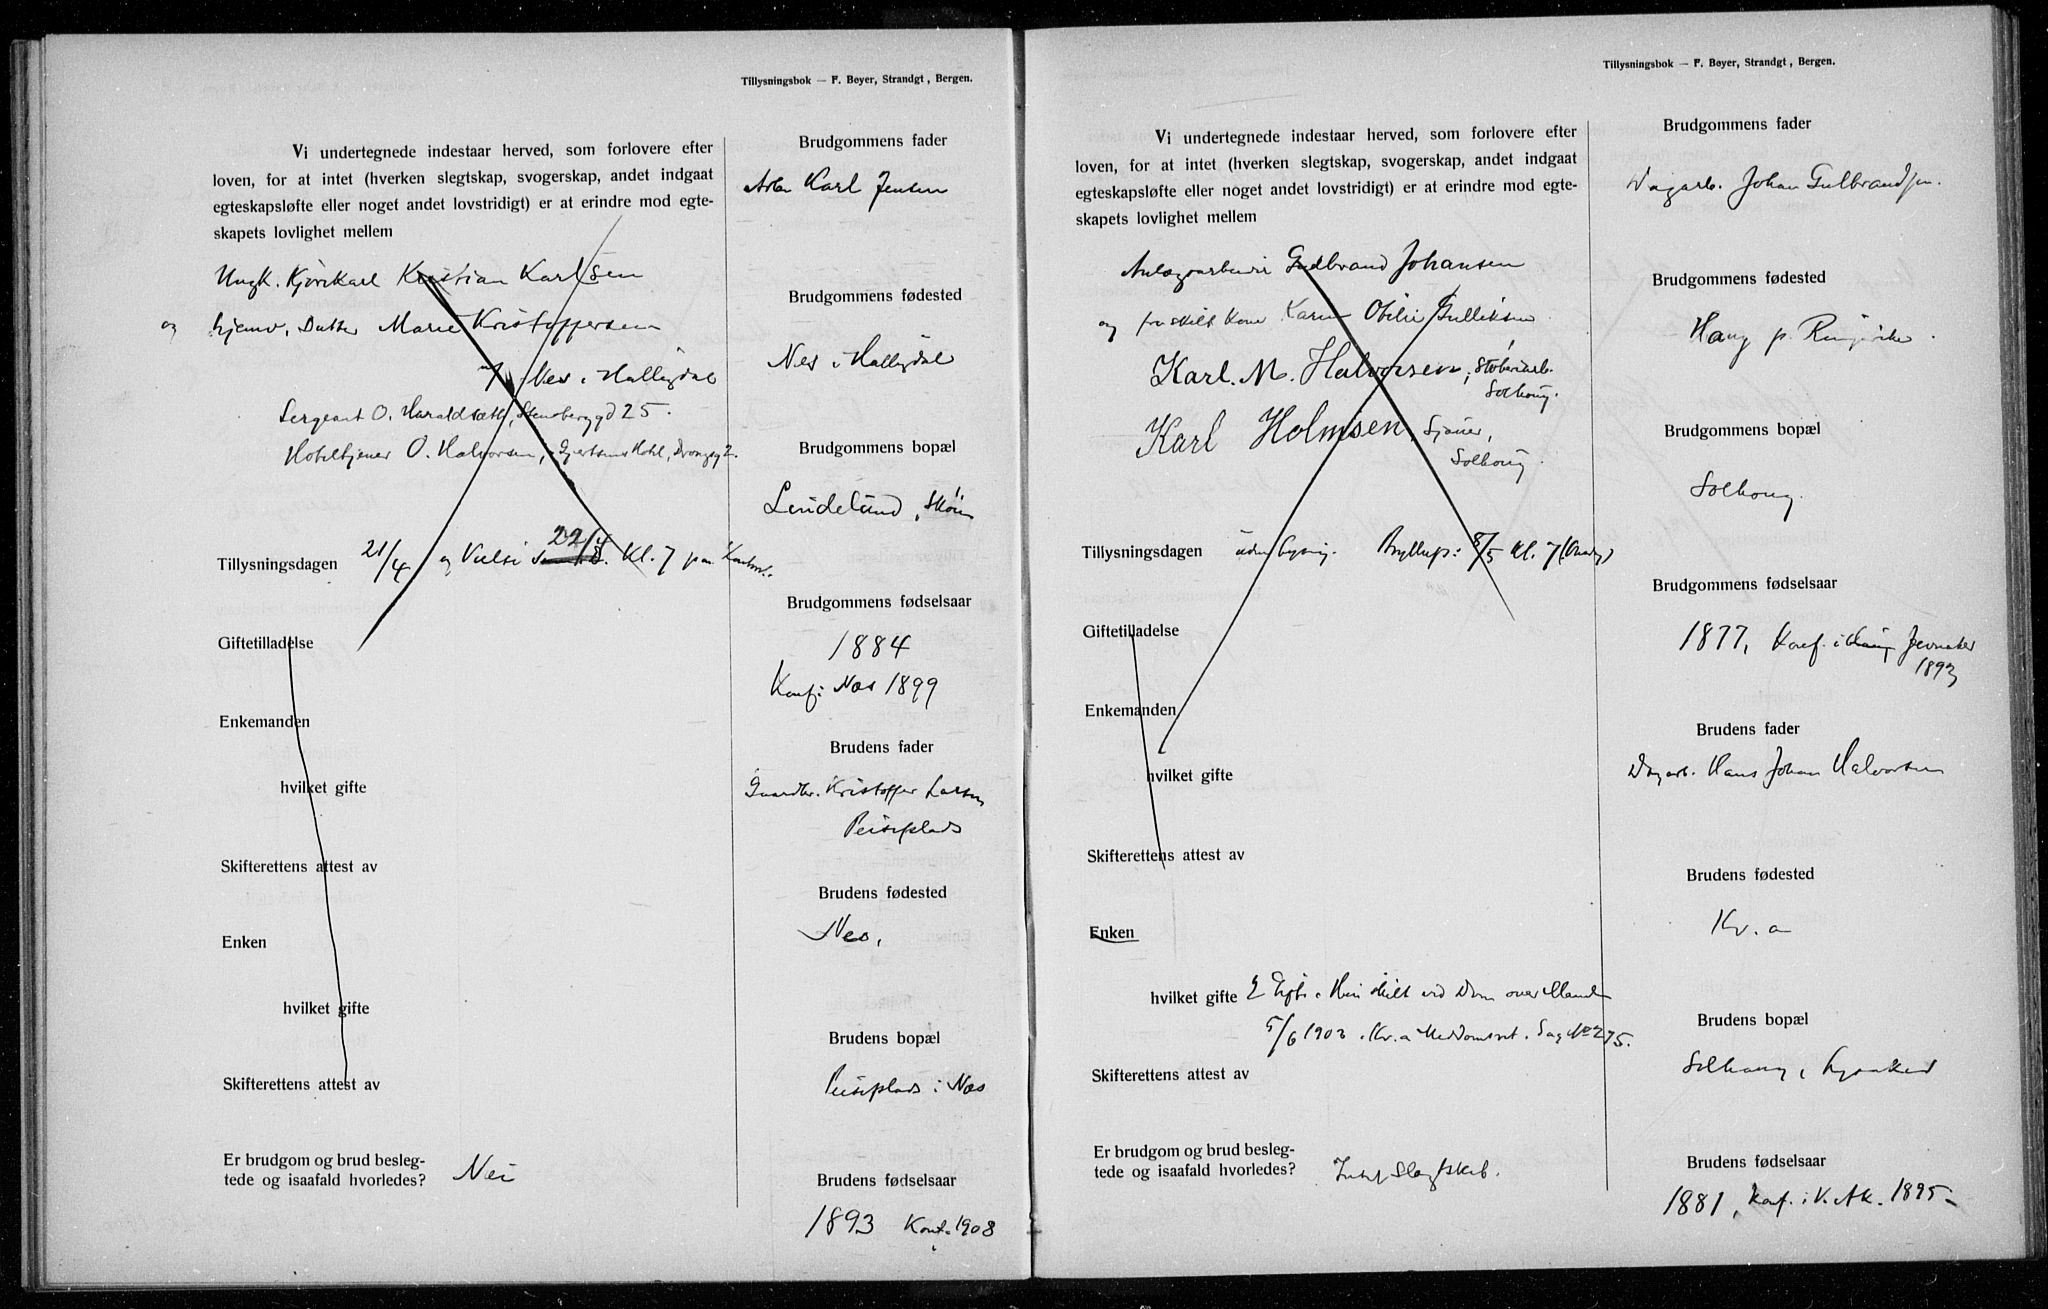 Tillysningsbok — F. Beyer, Strandgt, Bergen.
Vi undertegnede indestaar herved, som forlovere efter
loven, for at intet (hverken slegtskap, svogerskap, andet indgaat
egteskapsløfte eller noget andet lovstridigt) er at erindre mod egte-
skapets lovlighet mellem
Ungk. Kjørekarl Kristian Karlsen
og hjemv. Datter Marie Kristoffersen
Nes i Hallingdal
Sergeant O. Haraldsæth, Stensberggd 25.
Hoteltjener O. Halvorsen,
Tillysningsdagen 21/4 og Vielse 22/4 Kl. 7 paa Kontoret
Giftetilladelse
Enkemanden
hvilket gifte
Skifterettens attest av
Enken
hvilket gifte
Skifterettens attest av
Er brudgom og brud besleg-
tede og isaafald hvorledes? Nei
Brudgommens fader
Arb. Karl Jensen
Brudgommens fødested
Nes i Hallingdal
Brudgommens bopæl
Lindelund, Skøien
Brudgommens fødselsaar
1884
Konf. Nes 1899
Brudens fader
Gaardbr. Kristoffer Larsen
Peiseplads
Brudens fødested
Nes.
Brudens bopæl
Peiseplads i Nes
Brudens fødselsaar
1893 Konf. 1908
Tillysningsbok — F. Beyer, Strandgt, Bergen.
Vi undertegnede indestaar herved, som forlovere efter
loven, for at intet (hverken slegtskap, svogerskap, andet indgaat
egteskapsløfte eller noget andet lovstridigt) er at erindre mod egte-
skapets lovlighet mellem
Anlægsarbeider Gudbrand Johansen
og fraskilt Kone Karen Otilie Gulliksen
Karl. M. Halvorsen, Støberiarb.
Solhaug.
Karl Holmsen, Sjauer,
Solhaug.
Tillysningsdagen uden lysning. Bryllup: 8/5 Kl. 7 (Onsdag)
Giftetilladelse
Enkemanden
hvilket gifte
Skifterettens attest av
Enken
hvilket gifte 2 Egts. Hun skilt ved Dom over Manden
5/6 1903 i Kr.a Meddomsret. Sag No 275.
Skifterettens attest av
Er brudgom og brud besleg-
tede og isaafald hvorledes? Intet Slegtskab.
Brudgommens fader
Dagarb. Johan Gulbrandsen.
Brudgommens fødested
Haug p. Ringerike.
Brudgommens bopæl
Solhaug.
Brudgommens fødselsaar
1877, Konf. i Jevnaker
1893
Brudens fader
Dagarb. Hans Johan Halvorsen
Brudens fødested
Kr. a
Brudens bopæl
Solhaug, Lysaker
Brudens fødselsaar
1881, Konf. i V. Ak. 1895